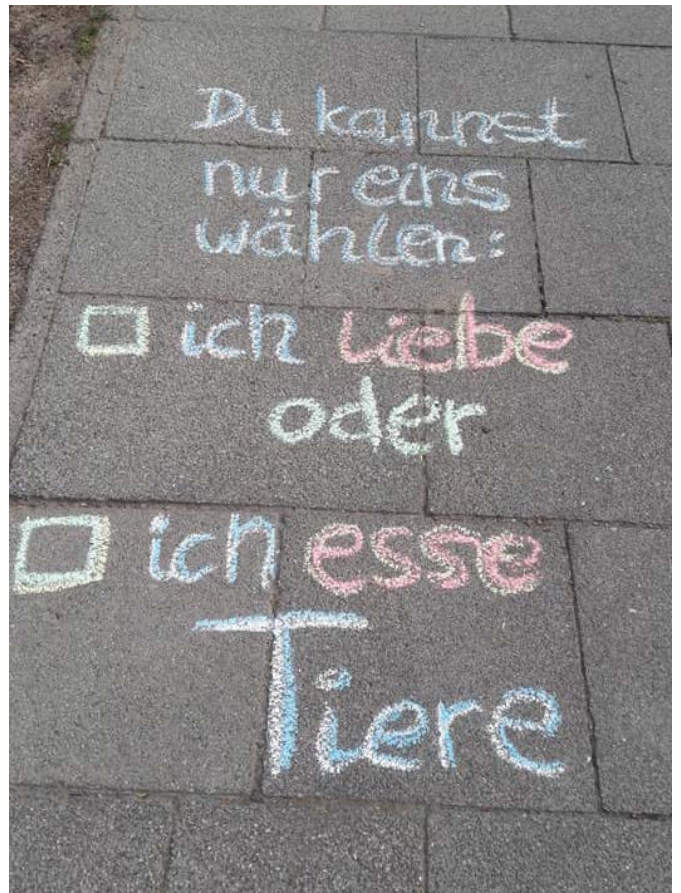 Du kannst
nur eins
wählen:
ich liebe
oder
ich esse
Tiere